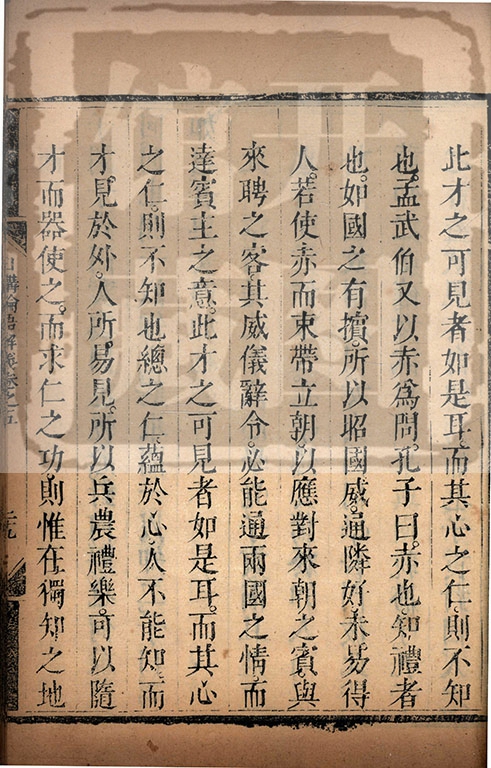 此才之可見者如是耳而其心之仁則不知
也孟武伯又以赤爲問孔子曰赤也知禮者
也如國之有擯所以昭國威通隣好未易得
人若使赤而束帶立朝以應對來朝之賓與
來聘之客其威儀辭令必能通兩國之情而
達賓主之意此才之可見者如是耳而其心
之仁則不知也總之仁蘊於心人不能知而
才見於外人所易見所以兵農禮樂可以隨
才而器使之而求仁之功則惟在獨知之地
日講論語解義卷之五
二九